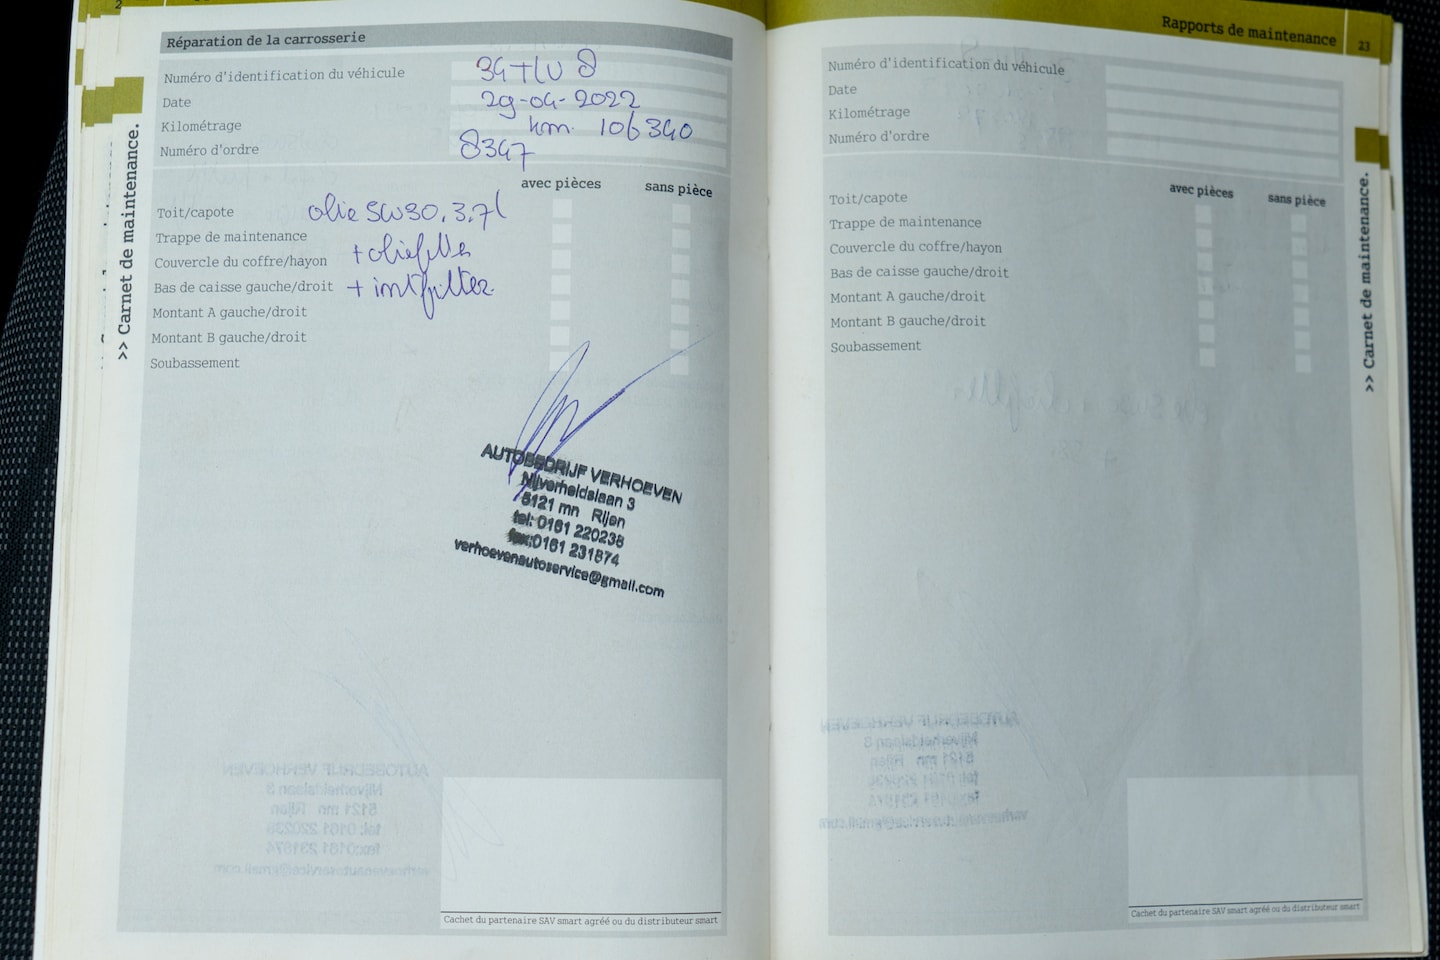 2
Réparation de la carrosserie
Numéro d'identification du véhicule 34TLV8
Date 29-04-2022
Kilométrage km. 106340
Numéro d'ordre 8347
avec pièces sans pièce
Toit/capote olie 5W30, 3,7l
Trappe de maintenance
Couvercle du coffre/hayon + oliefilter
Bas de caisse gauche/droit + intfilter
Montant A gauche/droit
Montant B gauche/droit
Soubassement
AUTOBEDRIJF VERHOEVEN
Nijverheidslaan 3
5121 mn Rijen
tel: 0161 220238
fax:0161 231874
verhoevenautoservice@gmail.com
Cachet du partenaire SAV smart agréé ou du distributeur smart
>> Carnet de maintenance.
Rapports de maintenance 23
Numéro d'identification du véhicule
Date
Kilométrage
Numéro d'ordre
avec pièces sans pièce
Toit/capote
Trappe de maintenance
Couvercle du coffre/hayon
Bas de caisse gauche/droit
Montant A gauche/droit
Montant B gauche/droit
Soubassement
Cachet du partenaire SAV smart agréé ou du distributeur smart
>> Carnet de maintenance.